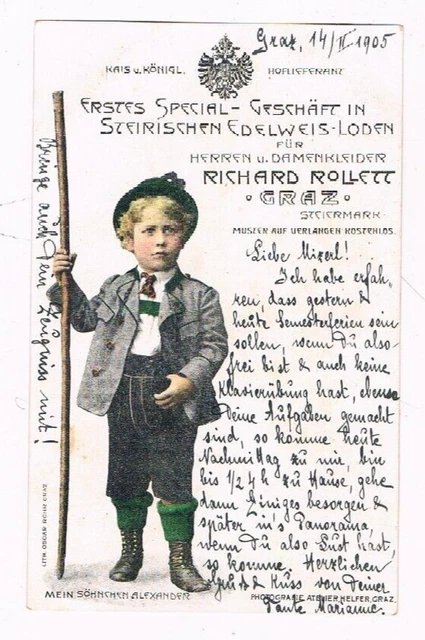 Graz, 14/II 1905
KAIS u. KÖNIGL. HOFLIEFERANT
ERSTES SPECIAL-GESCHÄFT IN
STEIRISCHEN EDELWEIS-LODEN
FÜR
HERREN u. DAMENKLEIDER
RICHARD ROLLETT
· GRAZ ·
STEIERMARK
MUSTER AUF VERLANGEN KOSTENLOS.
Liebe Mizerl!
Ich habe erfah-
ren, dass gestern &
heute Semesterferien sein
sollen, wenn Du also
frei bist & auch keine
Klavierübung hast, ebenso
Deine Aufgaben gemacht
sind, so komme heute
Nachmittag zu mir, bin
bis 1/2 4 h zu Hause, gehe
dann Einiges besorgen &
später in's Panorama,
wenn Du also Lust hast,
so komme. Herzlichen
Gruß & Kuss von Deiner
Tante Marianne.
Bringe auch Dein Zeugniss mit!
LITH. OSCAR ROHR GRAZ
MEIN SÖHNCHEN ALEXANDER
PHOTOGRAFIE ATELIER HELFER, GRAZ.